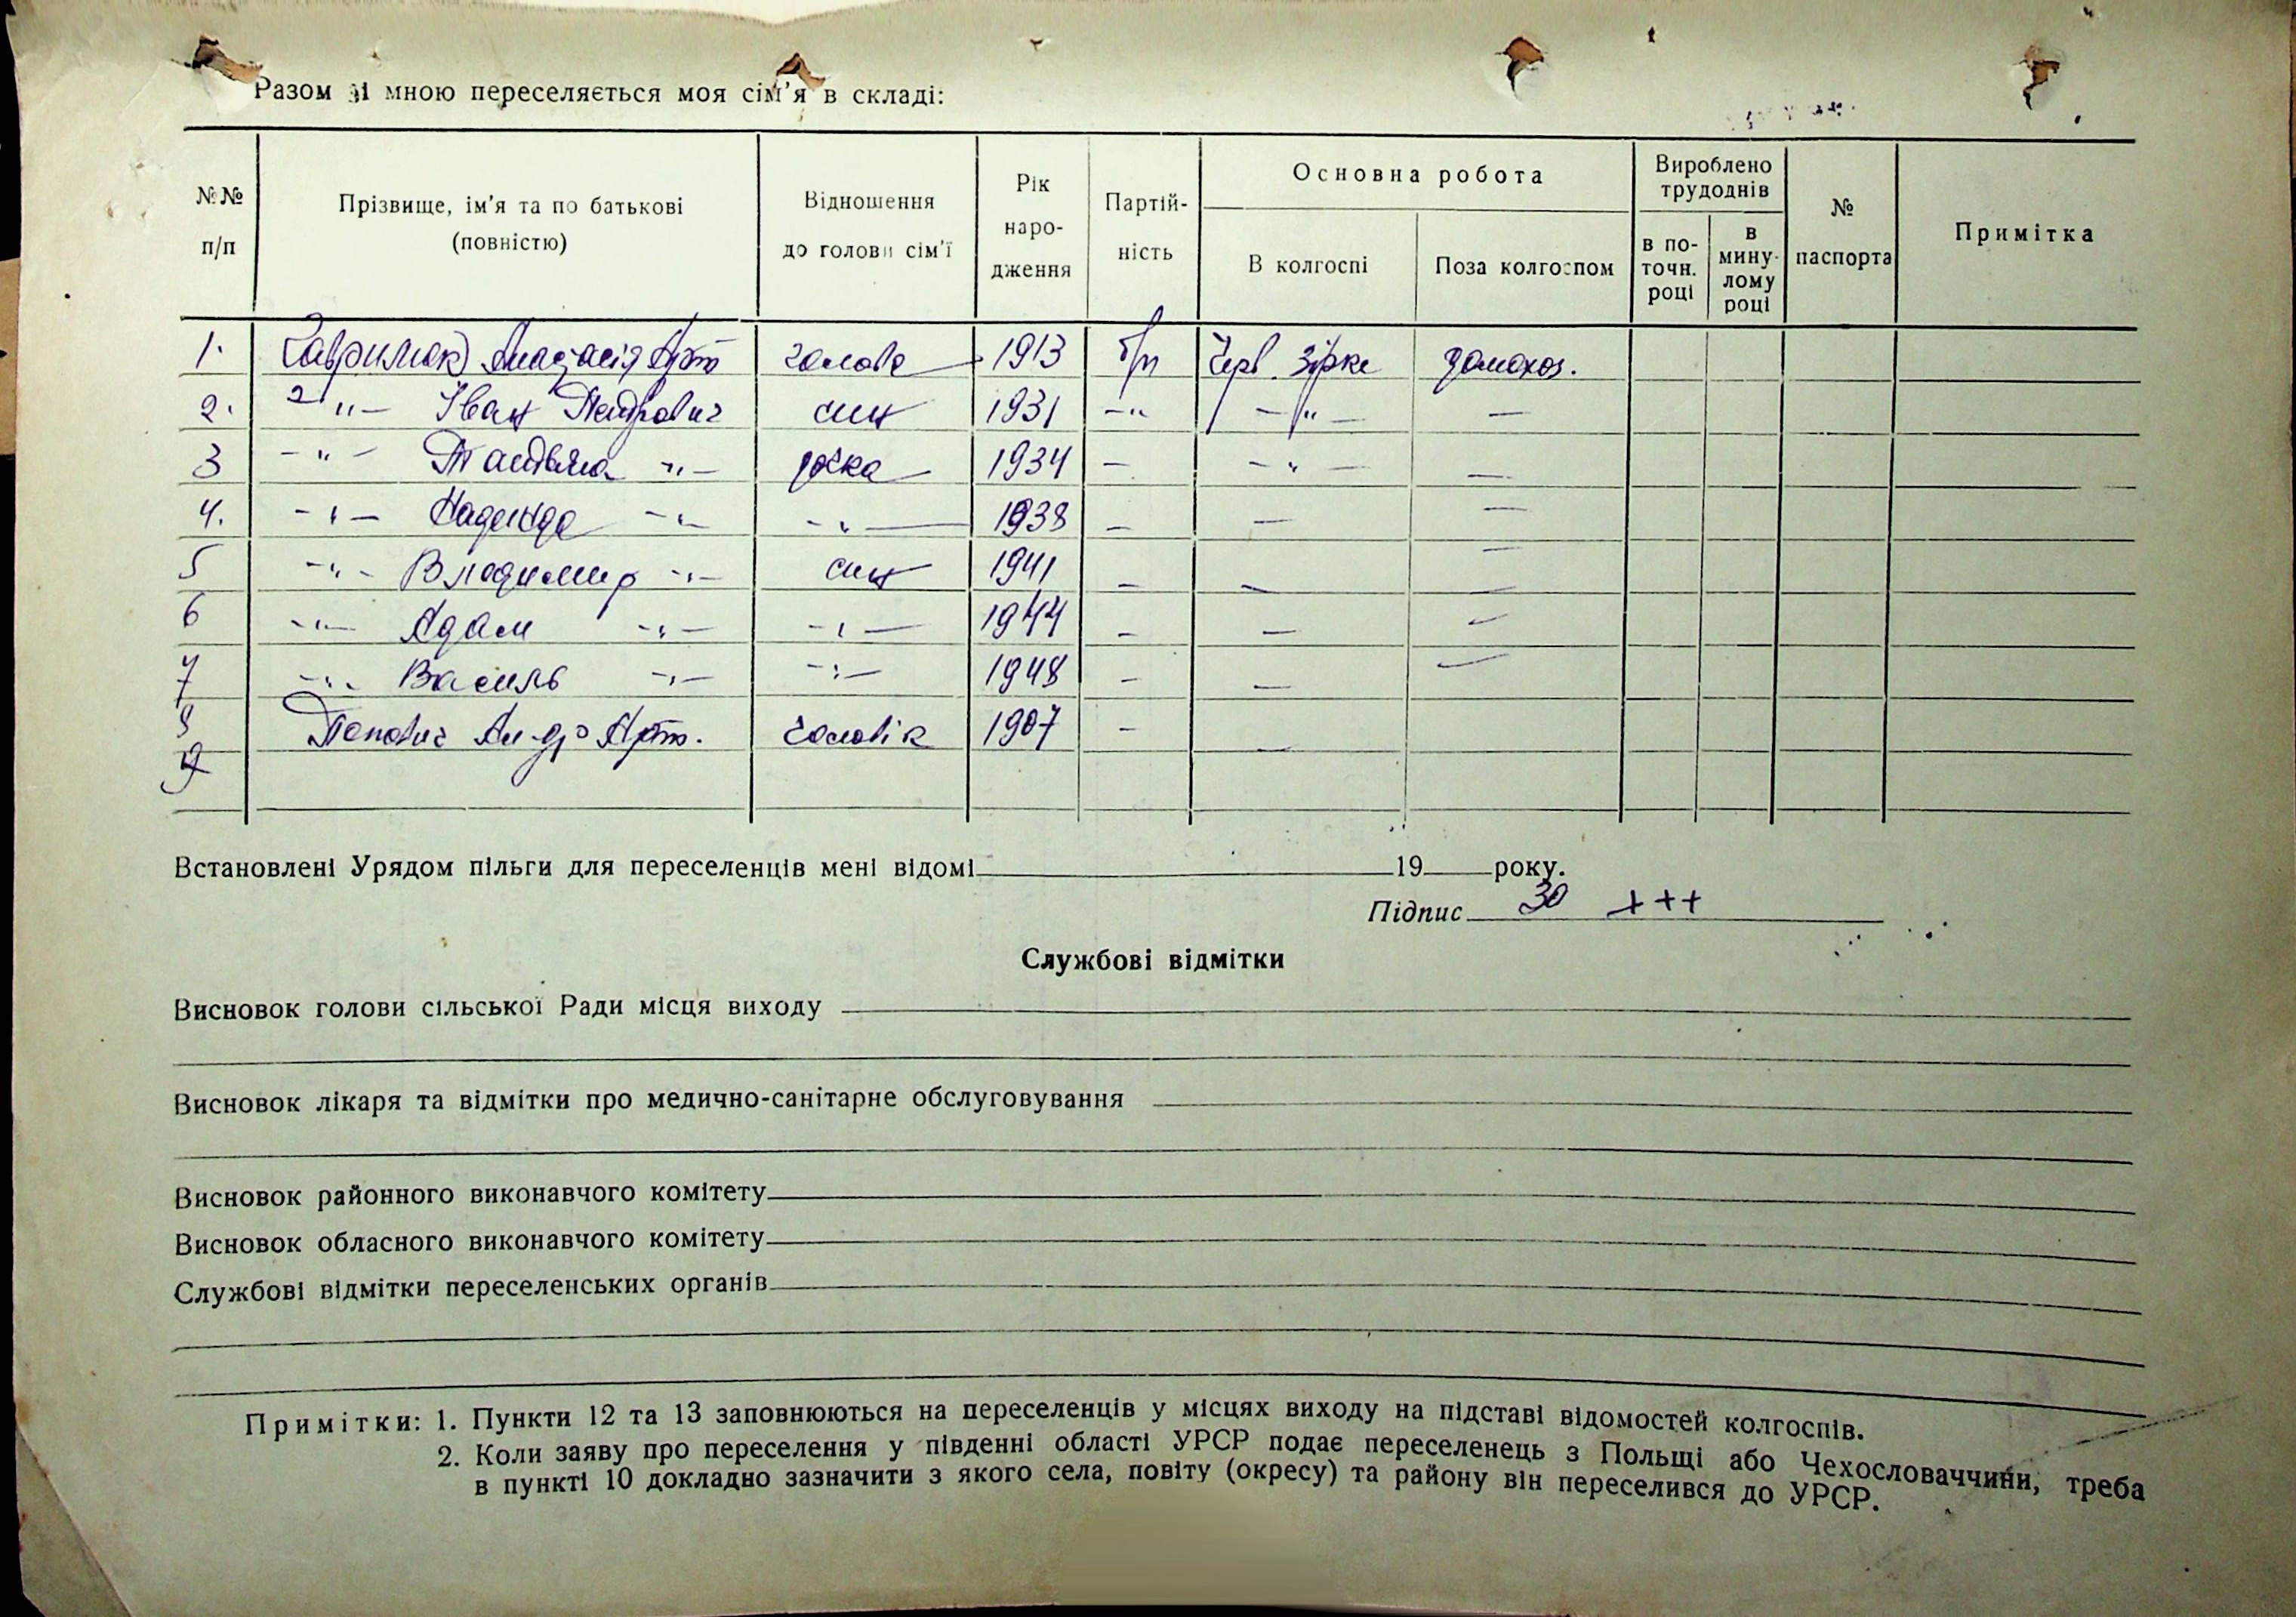 Разом зі мною переселяється моя сім'я в складі:
№№ п/п
Прізвище, ім'я та по батькові (повністю)
Відношення до голови сім'ї
Рік народження
Партій-ність
Основна робота
В колгоспі
Поза колгоспом
Вироблено трудоднів
в по-точн. році
в мину-лому році
№ паспорта
Примітка
1. Гаврилюк Анастасія Арт голова 1913 б/п Черв. Зірка домохоз.
2. -"- Іван Петрович син 1931 -"- -"- —
3 -"- Татьяна -"- дочка 1934 — -"- —
4. -"- Надежда -"- -"- 1938 — — —
5 -"- Владимир -"- син 1941 — — —
6 -"- Адам -"- -"- 1944 — — —
7 -"- Василь -"- -"- 1948 — — —
8 Попович Арт. чоловік 1907 — —
9
Встановлені Урядом пільги для переселенців мені відомі 19 року.
Підпис +++
Службові відмітки
Висновок голови сільської Ради місця виходу
Висновок лікаря та відмітки про медично-санітарне обслуговування
Висновок районного виконавчого комітету
Висновок обласного виконавчого комітету
Службові відмітки переселенських органів
Примітки: 1. Пункти 12 та 13 заповнюються на переселенців у місцях виходу на підставі відомостей колгоспів.
2. Коли заяву про переселення у південні області УРСР подає переселенець з Польщі або Чехословаччини, треба
в пункті 10 докладно зазначити з якого села, повіту (окресу) та району він переселився до УРСР.